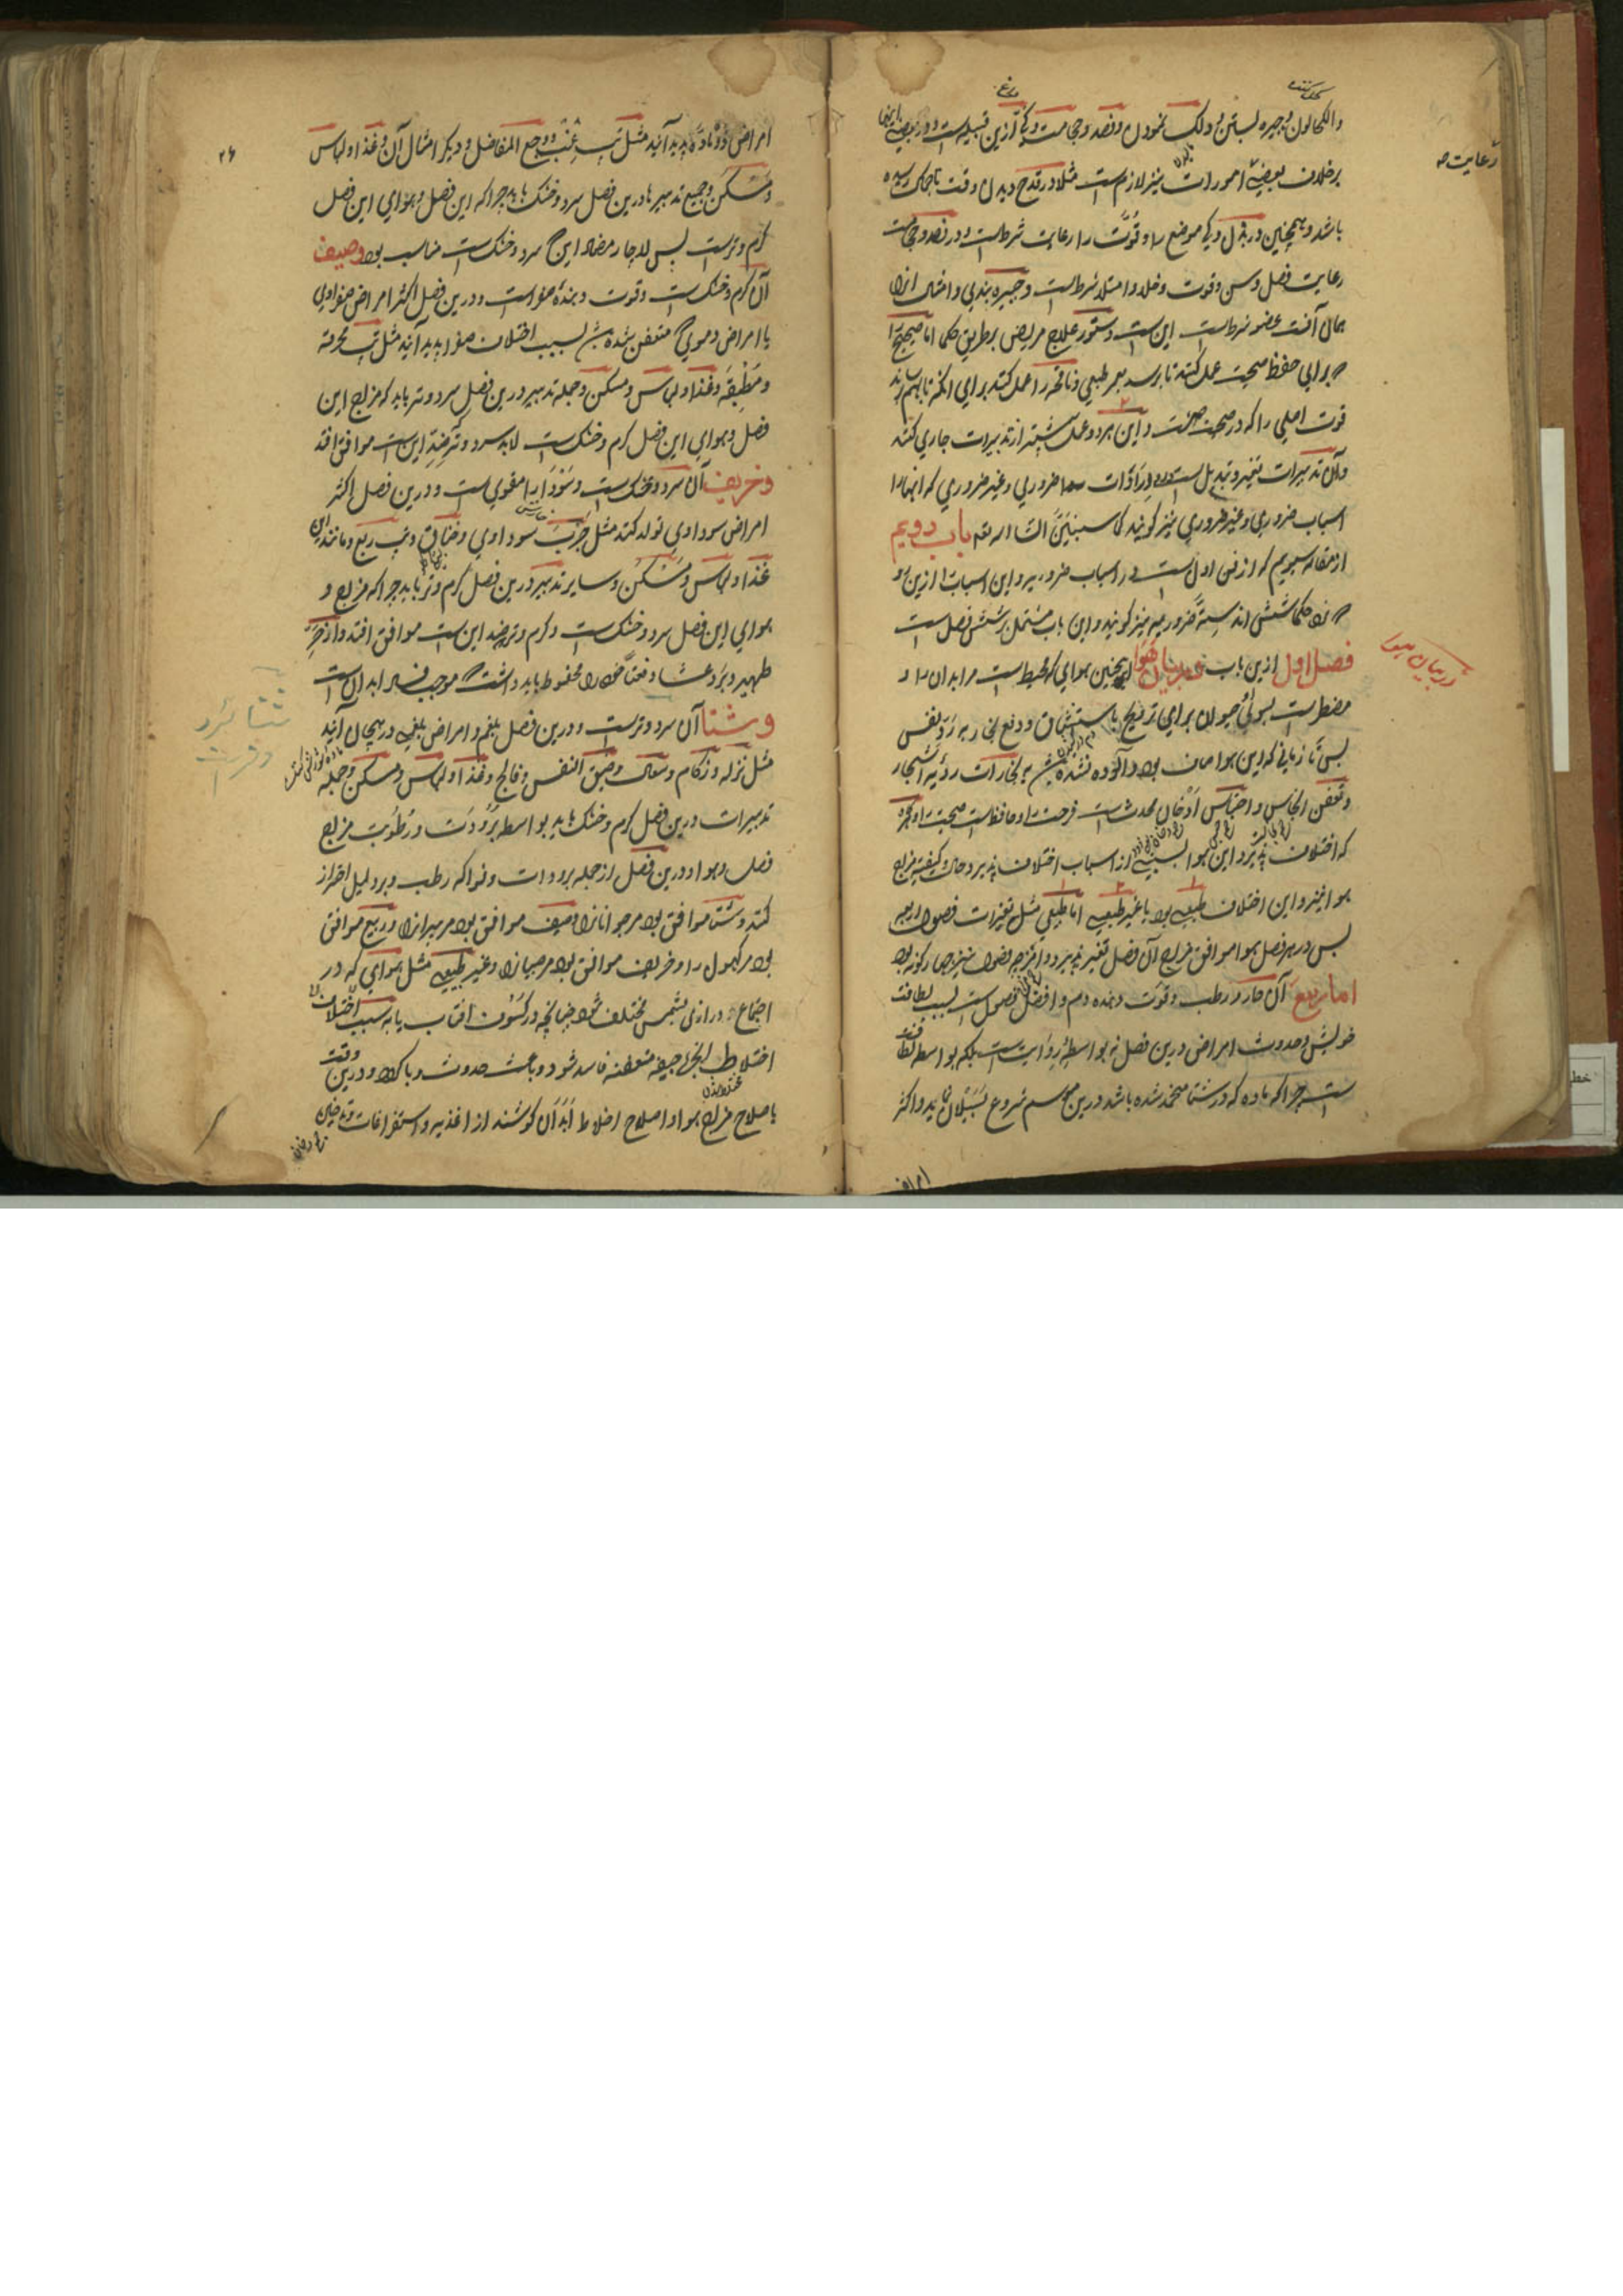 والکحالون وجبیره بستن و دلک نمودن و فصد و حجامت و کی ازین قبیل است و در بعضی اینها
برخلاف بعضی امورات نیز لازم است مثلا در قدح دیدن وقت
رعایت
باشد و همچنین در بزل و کی موضع را و قوت را رعایت شرطست و در فصد و حجامت
رعایت فصل و سن و قوت و خلا و امتلا شرطست و جبیره بندی و امثال آنرا
حال آفت عضو شرطست این ست دستور علاج مریض بر طریق حکما اما صحیح را
برای حفظ صحت عمل کنند تا برسد بعمر طبیعی و ناقه را عمل کنند برای آنکه تا بهم رساند
قوت اصلی را که در صحت داشت و این هر دو عمل بیشتر از تدبیرات جاری کنند
و آن تدبیرات تغیر و تبدیل ست ضروری و غیر ضروری که آنها را
اسباب ضروری و غیر ضروری نیز گویند کما سنبین انشاء الله باب دویم
از مقاله سیوم که از فن اول ست در اسباب ضروریه و این اسباب را ازین رو
نزد حکما شش اند سته ضروریه نیز گویند و این باب مشتمل بر شش فصل ست
فصل اول ازین باب در بیان هوا همچنین هوای که محیط است مر ابدان را و
در بیان هوا
مضطرست بسوی حیوان برای ترویح باستنشاق و دفع بخار به رد نفس
پس تا زمانی که این هوا صاف بود و آلوده نشده به بخارات ردیه اشجار
و تعفن اجناس و احتباس ادخان محدث است فرحت را و حافظست صحت را و هرگاه
که اختلاف پذیرد این هوا بسببی از اسباب اختلاف پذیرد حال و کیفیت مزاج
هوا نیز و این اختلاف طبیعی بود یا غیر طبیعی اما طبیعی مثل تغیرات فصول اربعه
پس در هر فصل هوا موافق مزاج آن فصل تغیر پذیرد و امزجه فصول نیز چهار گونه بود
اما ربیع آن حار و رطب و قوت دهنده دم و افضل فصول ست بسبب لطافت
خویش و حدوث امراض درین فصل نه بواسطه رداءت ست بلکه بواسطه لطافت
ست چرا که ماده که در شتا منجمد شده باشد درین موسم شروع بسیلان نماید و اکثر
امراض
۲۶
امراض ذو ماده پدید آیند مثل تپ غب و وجع المفاصل و دیگر امثال آن و غذا و لباس
و مسکن و جمیع تدبیرها درین فصل سرد و خشک باید چرا که این فصل و هوای این فصل
گرم و ترست پس لاچار مضاد این که سرد و خشک ست مناسب بود وصیف
آن گرم و خشک ست و قوت دهنده صفراست و درین فصل اکثر امراض صفراوی
یا امراض دموی که متعفن شده بسبب اختلاف صفرا پدید آیند مثل تپ محرقه
و مطبقه و غذا و لباس و مسکن و جمله تدبیر درین فصل سرد و تر باید که مزاج این
فصل و هوای این فصل گرم و خشک ست لابد سرد و تر ضد این ست موافق افتد
وخریف آن سرد و خشک ست و سودا را مقوی ست و درین فصل اکثر
امراض سوداوی تولد کنند مثل جرب سوداوی و خناق و تب ربع و مانند این
غذا و لباس و مسکن و سایر تدبیر درین فصل گرم و تر باید چرا که مزاج و
هوای این فصل سرد و خشک ست و گرم و تر ضد این ست موافق افتد و از حر
ظهیره و برد عشا دفعتا خود را محفوظ باید داشت که موجب فساد ابدان ست
وشتا آن سرد و ترست و درین فصل بلغم و امراض بلغمی در هیجان آیند
شتا سرد
و تر ست
مثل نزله و زکام و سعال و ضیق النفس و فالج و غذا و لباس و مسکن و جمله
تدبیرات درین فصل گرم و خشک باید بواسطه برودت و رطوبت مزاج
فصل و هوا و درین فصل از جمله برودات و فواکه رطب و برد لیل احتراز
کنند و شتا موافق بود مر جوانانرا و صیف موافق بود مر پیرانرا و ربیع موافق
بود مر کهول را و خریف موافق بود مر صبیانرا و غیر طبیعی مثل هوای که در
اجتماع دراری بشمس مختلف شود چنانچه در کسوف آفتاب یا به سبب اختلاف
اختلاط ابخره جیفه متعفنه فاسد شود و باعث حدوث وبا گردد و درین وقت
باصلاح مزاج هوا و اصلاح اخلاط ابدان کوشند از اغذیه و استفراغات